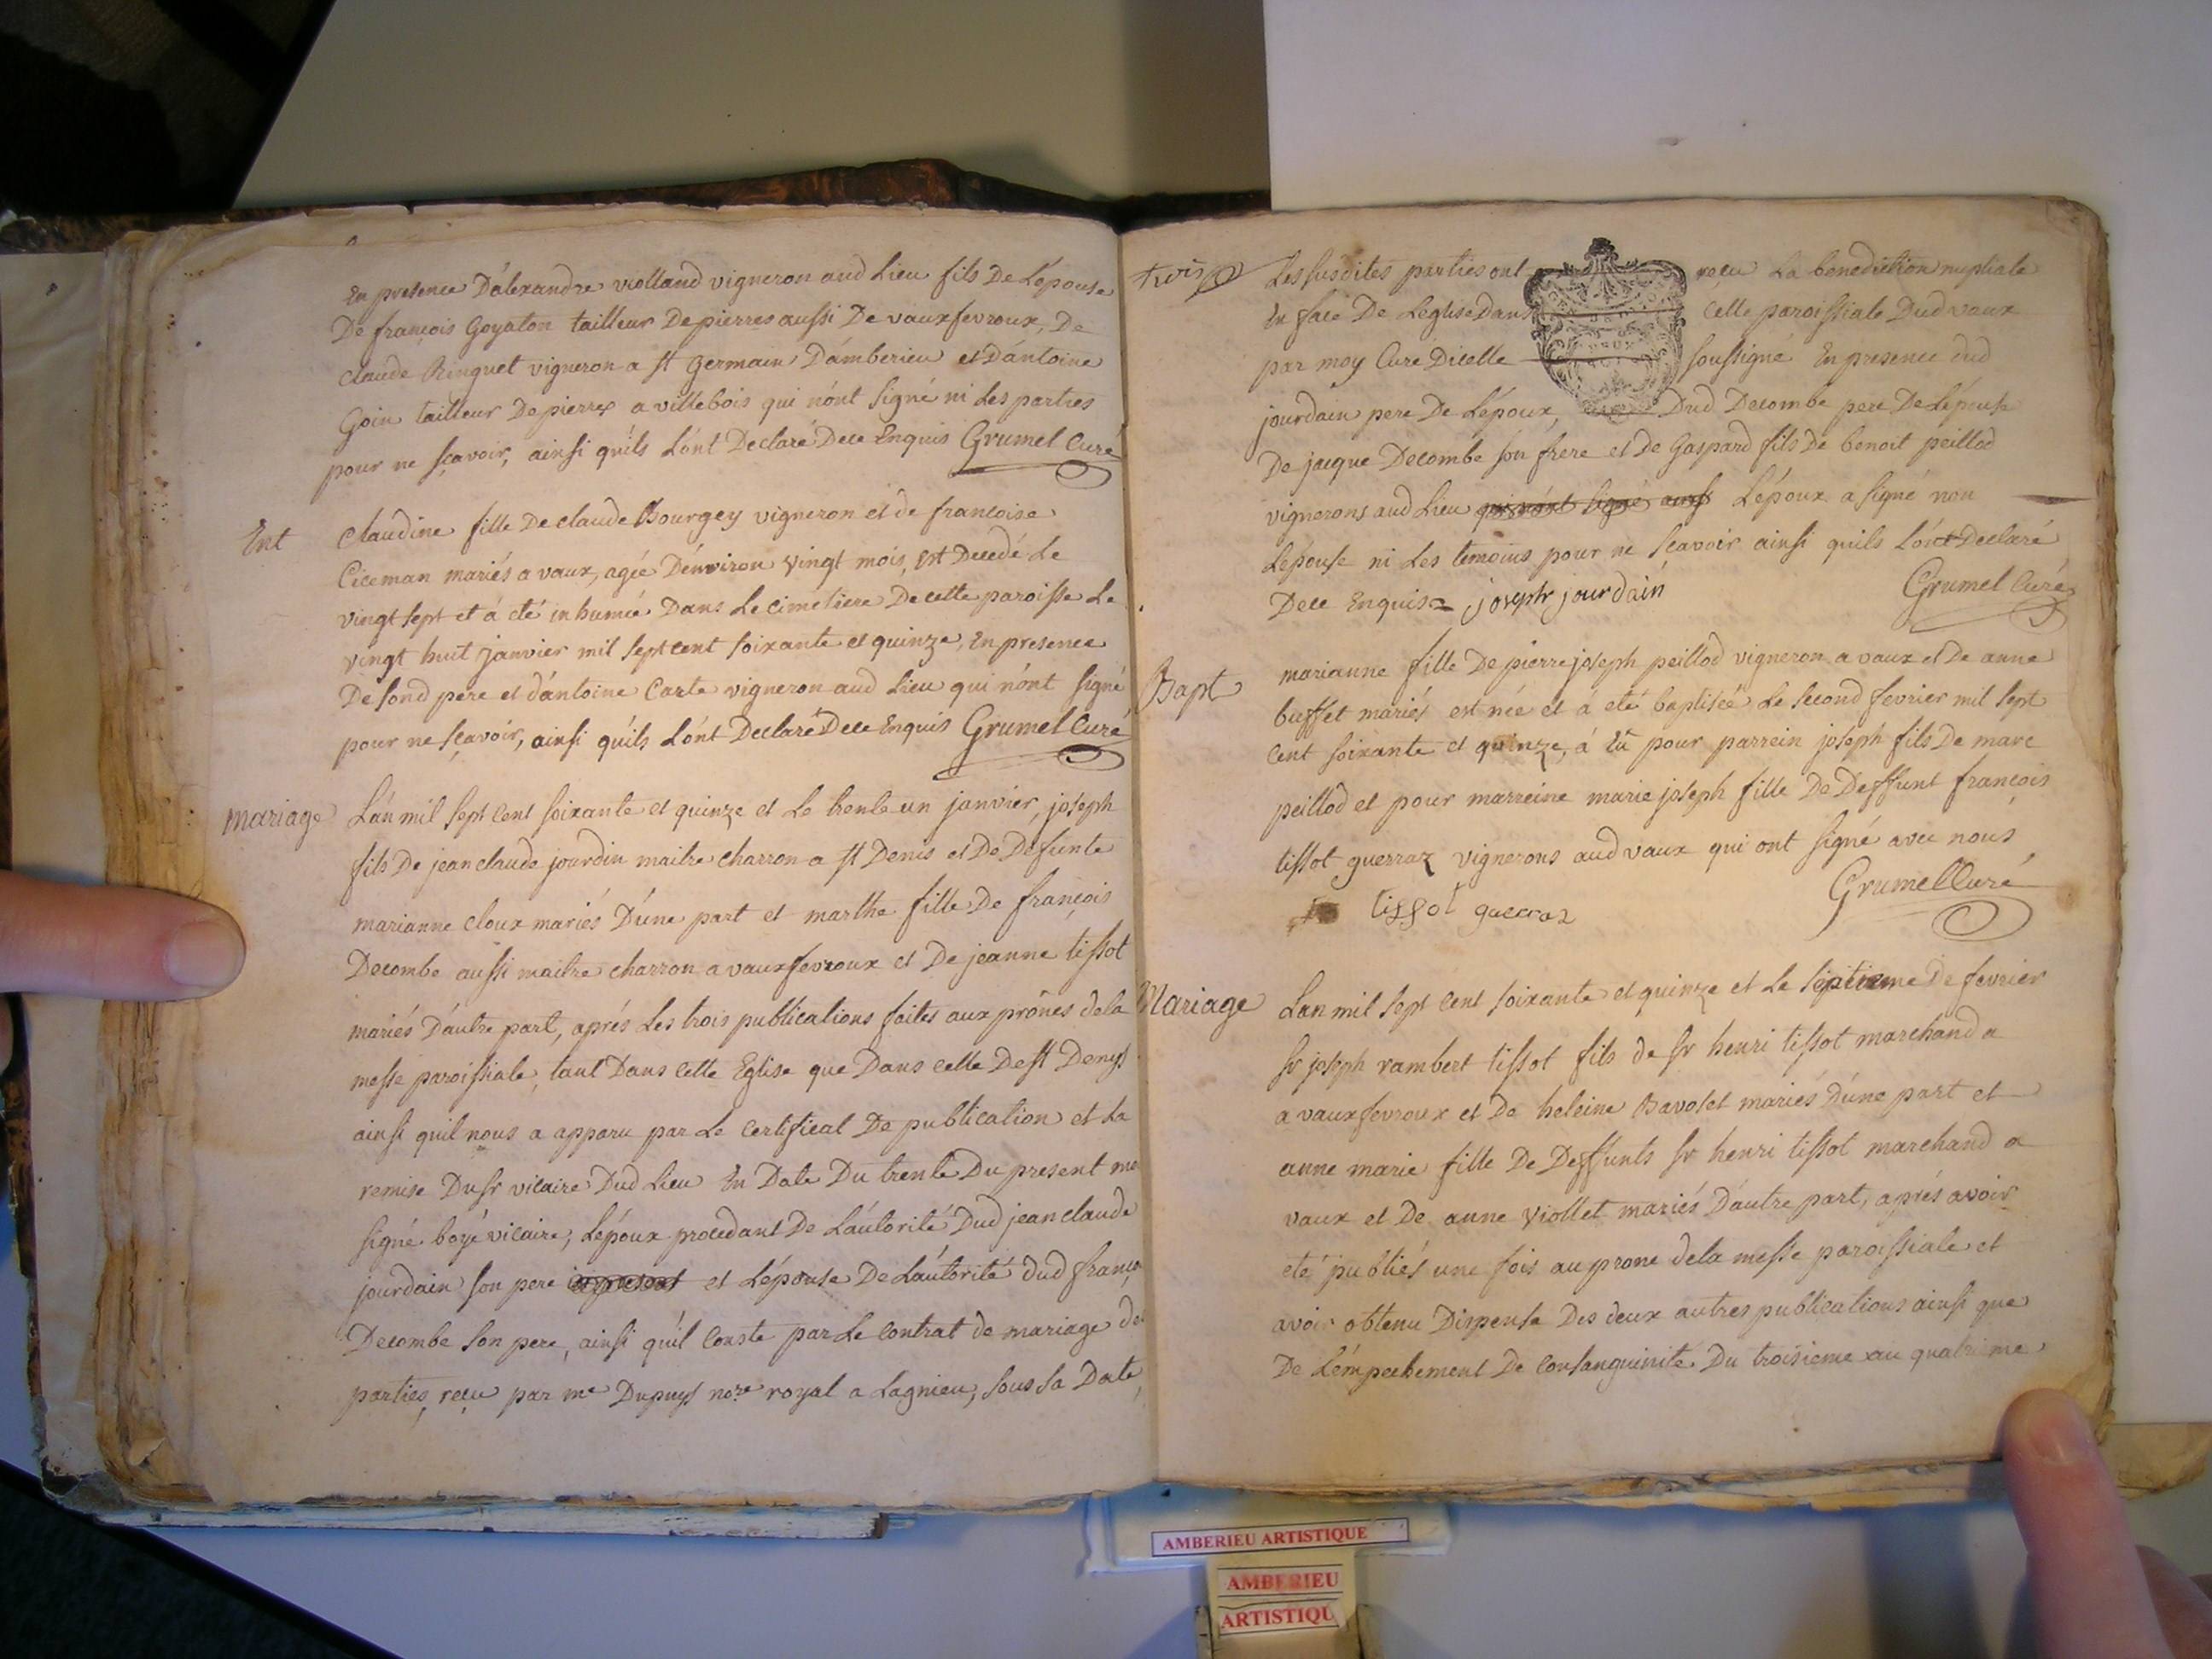 En presence D'alexandre violland vigneron aud Lieu fils De Lépouse
De françois Goyaton tailleur De pierres aussi De vauxfevroux, De
claude Ringuet vigneron a st Germain D'amberieu et D'antoine
Goin tailleur De pierres a villebois qui n'ont signé ni Les parties
pour ne sçavoir, ainsi qu'ils L'ont Declaré De ce Enquis Grumel Curé
Ent
claudine fille De claude Bourgey vigneron et de francoise
Ciceman mariés a vaux, agée D'environ vingt mois, est Decedé Le
vingt sept et á eté inhumée Dans Le Cimetiere De cette paroisse Le
vingt huit janvier mil sept cent soixante et quinze, En presence
De sond pere et d'antoine Carte vigneron aud Lieu qui n'ont signé
pour ne sçavoir, ainsi qu'ils L'ont Declaré De ce Enquis Grumel Curé
mariage
L'an mil sept cent soixante et quinze et Le trente un janvier, joseph
fils De jean claude jourdin maitre charron a st Denis et De Defunte
marianne cloux mariés D'une part et marthe fille De françois
Decombe aussi maitre charron a vauxfevroux et De jeanne tissot
mariés D'autre part, aprés Les trois publications faites aux prônes dela
messe paroissiale, tant Dans cette Eglise que Dans celle De st Denys
ainsi quil nous a apparu par Le certificat De publication et La
remise Du sr vicaire Dud Lieu En Date Du trente Du present
signé boyé vicaire, L'époux procedant De L'autorité Dud jean claude
jourdain son pere et L'épouse De L'autorité dud
Decombe son pere, ainsi qu'il conste par Le contrat de mariage
parties, reçu par me Dupuys nore royal a Lagnieu, sous sa Date,
trois
Les susdites parties ont reçu La benediction nuptiale
En face De Leglise Dans Celle paroissiale Dud vaux
par moy Curé Dicelle soussigné En presence dud
jourdain pere De L'époux, Dud Decombe pere De L'épouse
De jacque Decombe son frere et de Gaspard fils De benoit peillod
vignerons aud Lieu qui n'ont signé L'époux a signé non
L'épouse ni Les temoins pour ne sçavoir ainsi quils L'ont Declaré
De ce Enquis joseph jourdain Grumel Curé
Bapt
marianne fille De pierre joseph peillod vigneron a vaux et De anne
buffet mariés est née et á eté baptisée Le second fevrier mil sept
cent soixante et quinze, á Eu pour parrein joseph fils De marc
peillod et pour marreine marie joseph fille De Deffunt françois
tissot guerraz vignerons aud vaux qui ont signé avec nous
tissot guerraz Grumel Curé
Mariage
Lan mil sept cent soixante et quinze et Le septieme De fevrier
sr joseph rambert tissot fils de sr henri tissot marchand a
a vauxfevroux et De heleine Bavolet mariés D'une part et
anne marie fille De Deffunts sr henri tissot marchand a
vaux et De anne viollet mariés D'autre part, aprés avoir
eté publiés une fois au prone dela messe paroissiale et
avoir obtenu Dispense Des deux autres publications ainsi que
De L'empechement De consanguinité Du troisieme au quatrieme
AMBERIEU ARTISTIQUE
AMBERIEU
ARTISTIQU